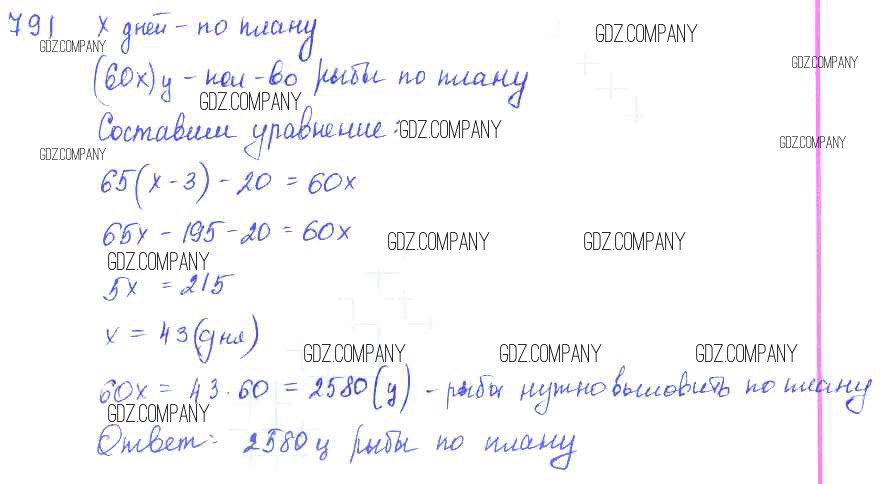 791 х дней - по плану
GDZ.COMPANY GDZ.COMPANY
(60х)ц - кол-во рыбы по плану
GDZ.COMPANY GDZ.COMPANY
Составим уравнение: GDZ.COMPANY
GDZ.COMPANY GDZ.COMPANY
65(х - 3) - 20 = 60х
65х - 195 - 20 = 60х
GDZ.COMPANY GDZ.COMPANY GDZ.COMPANY
5х = 215
х = 43 (дня)
GDZ.COMPANY GDZ.COMPANY GDZ.COMPANY
60х = 43 · 60 = 2580 (ц) - рыбы нужно выловить по плану
GDZ.COMPANY
Ответ: 2580 ц рыбы по плану